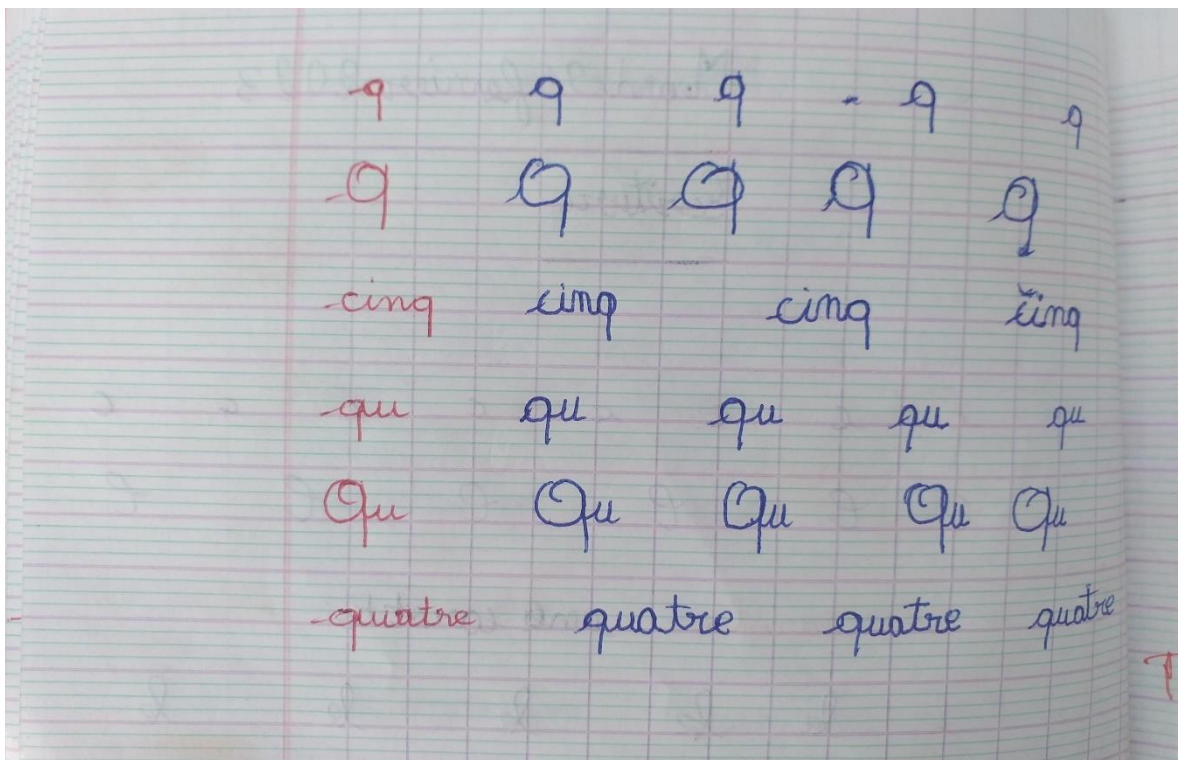 q q q q q
Q Q Q Q Q
cinq cinq cinq cinq
qu qu qu qu qu
Qu Qu Qu Qu Qu
quatre quatre quatre quatre